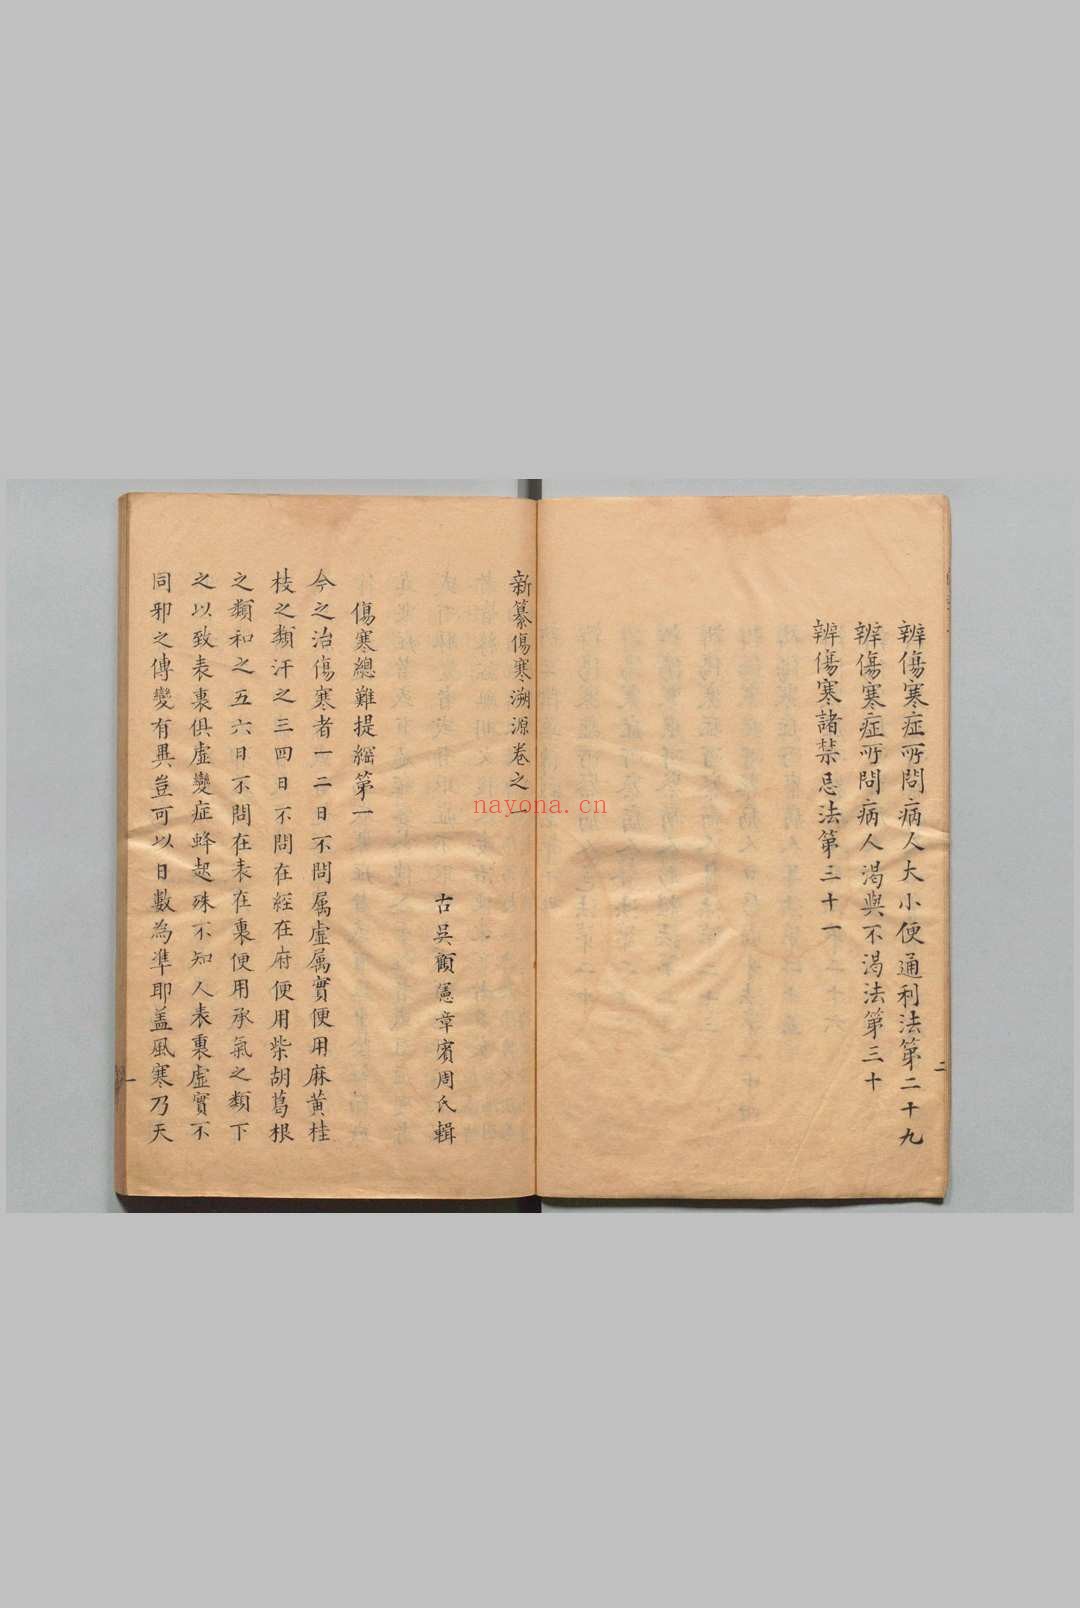 辨傷寒症所問病人大小便通利法第二十九
辨傷寒症所問病人渴與不渴法第三十
辨傷寒諸禁忌法第三十一
二
新纂傷寒溯源卷之一
古吳顧憲章賓周氏輯
傷寒總難提綱第一
今之治傷寒者一二日不問属虛属實便用麻黄桂
枝之類汗之三四日不問在經在府便用柴胡葛根
之類和之五六日不問在表在裏便用承氣之類下
之以致表裏俱虛變症蜂起殊不知人表裏虛實不
同邪之傳變有異豈可以日數為準耶盖風寒乃天
一
nayona.cn